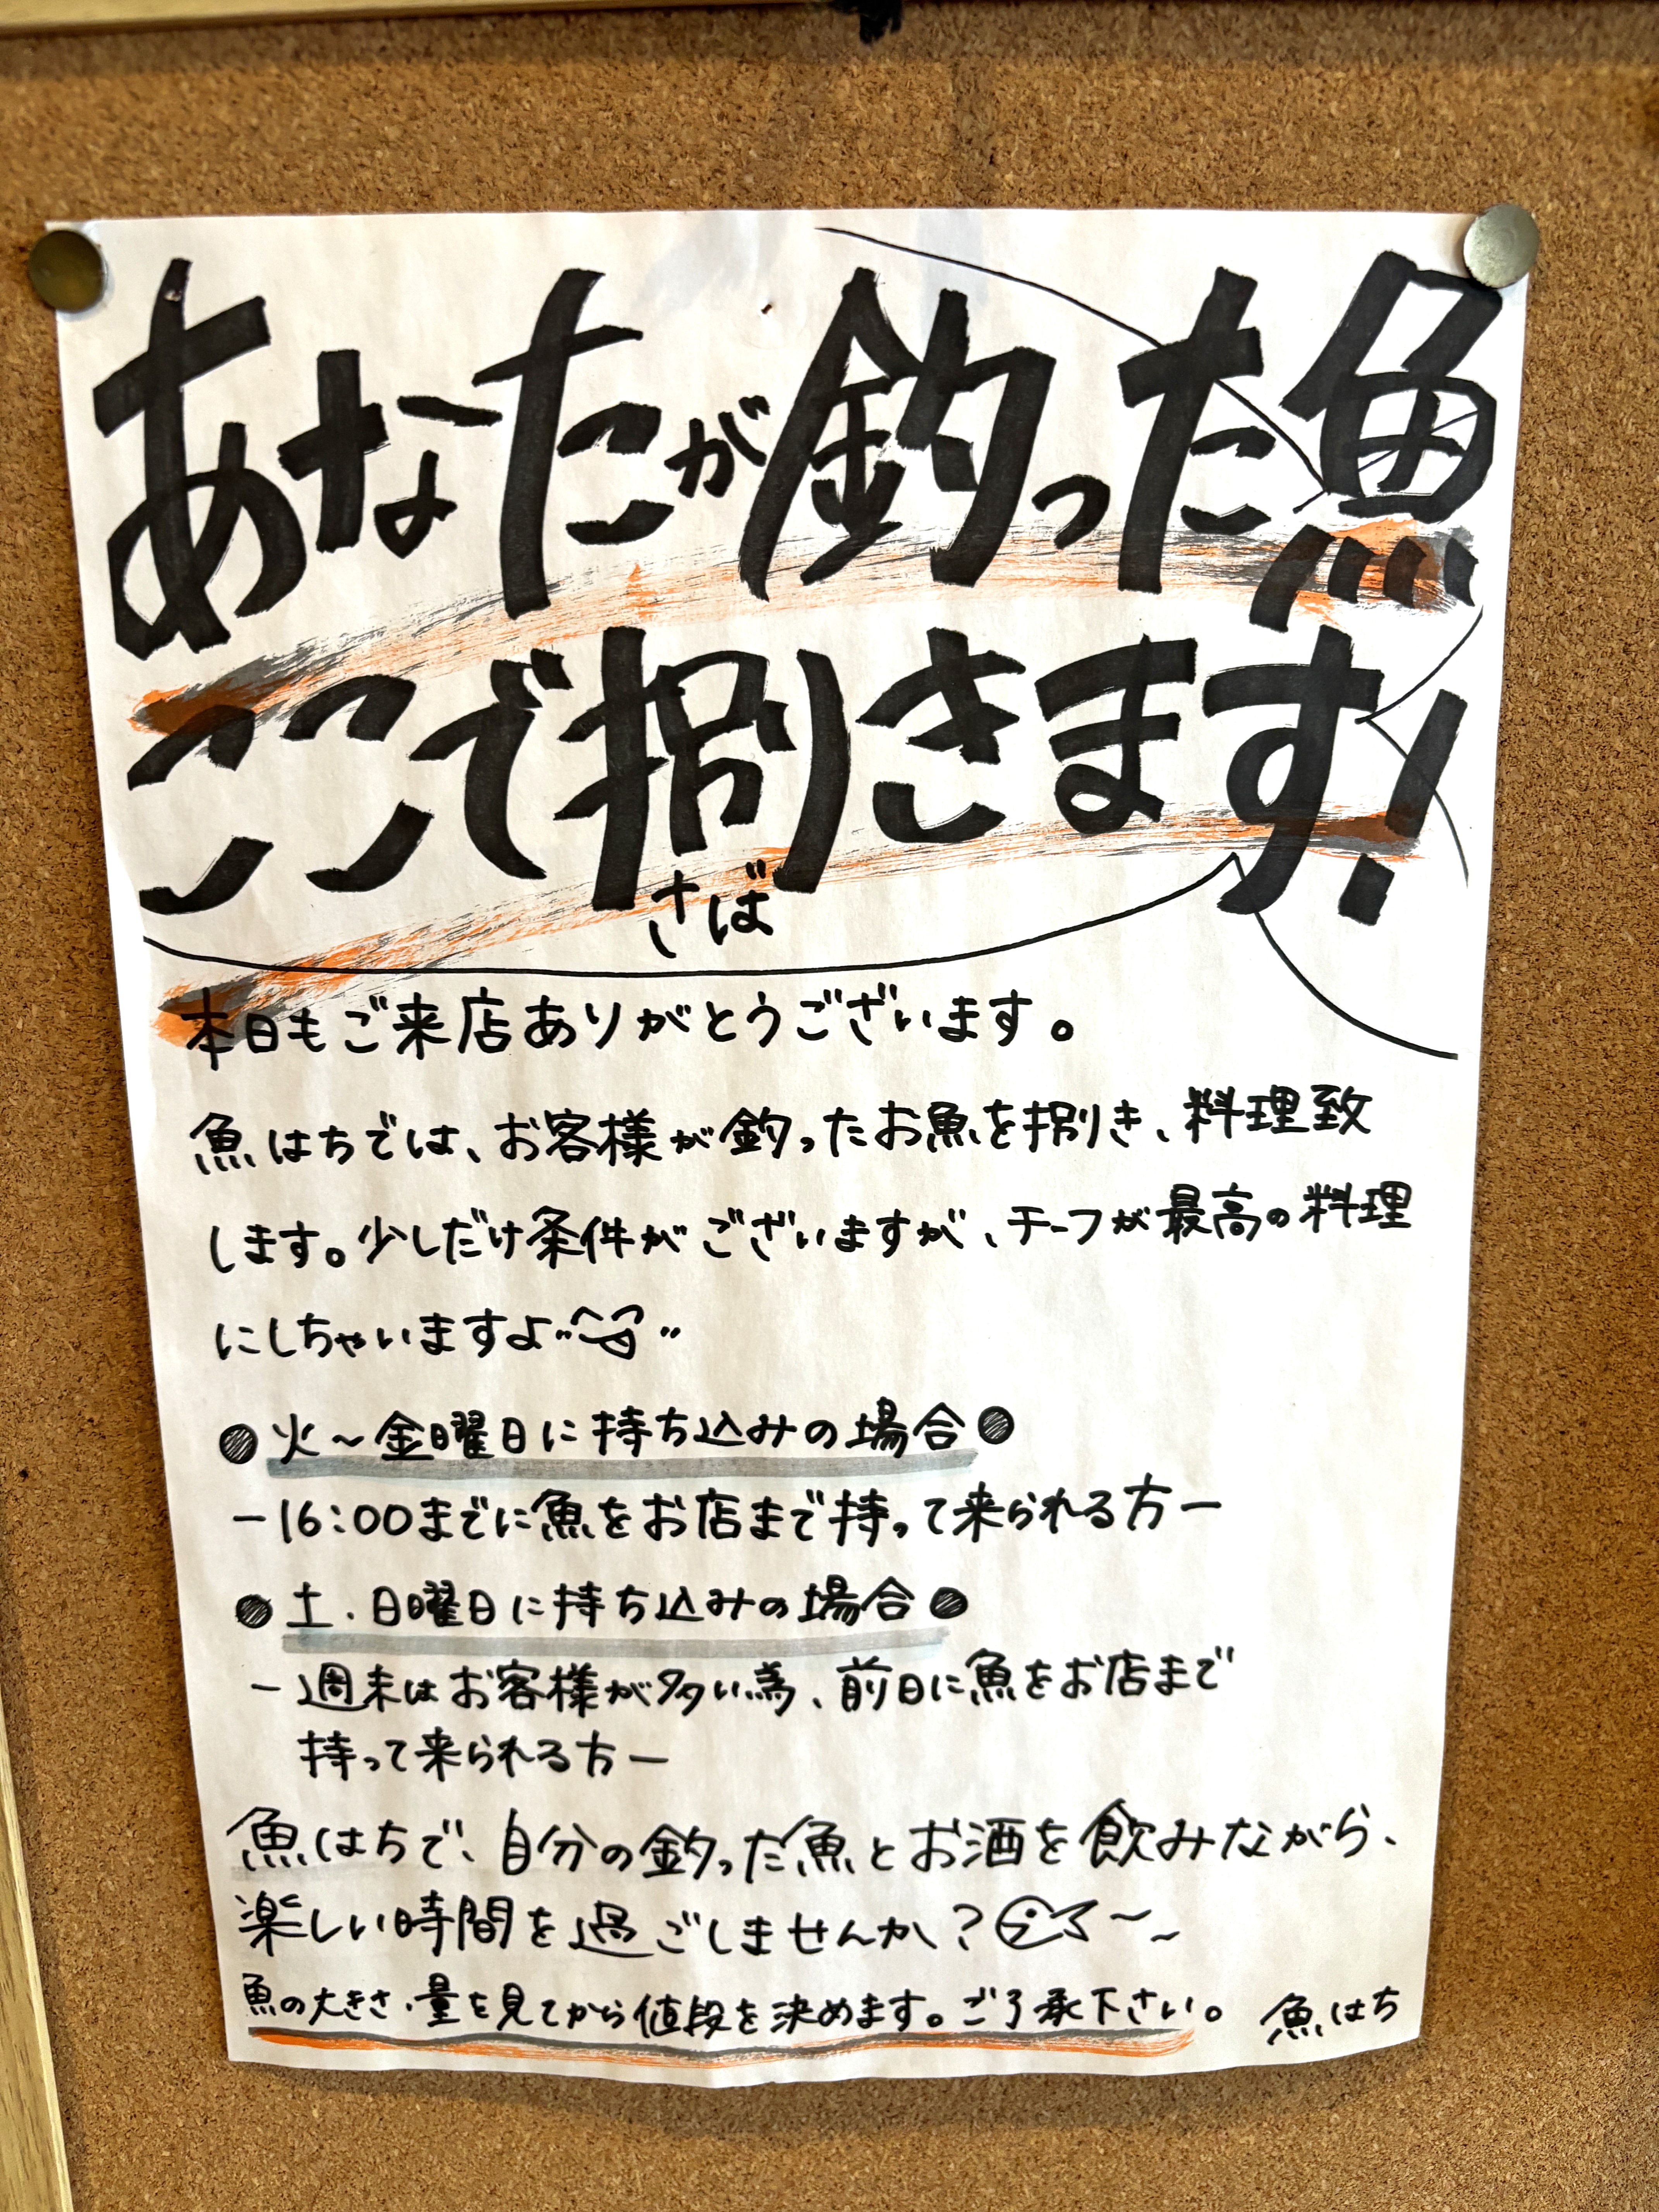 あなたが釣った魚
ここで捌きます!
さば
本日もご来店ありがとうございます。
魚はちでは、お客様が釣ったお魚を捌き、料理致
します。少しだけ条件がございますが、チーフが最高の料理
にしちゃいますよ
●火～金曜日に持ち込みの場合●
ー16:00までに魚をお店まで持って来られる方ー
●土・日曜日に持ち込みの場合●
ー週末はお客様が多い為、前日に魚をお店まで
持って来られる方ー
魚はちで、自分の釣った魚とお酒を飲みながら、
楽しい時間を過ごしませんか?
魚の大きさ・量を見てから値段を決めます。ご了承下さい。 魚はち